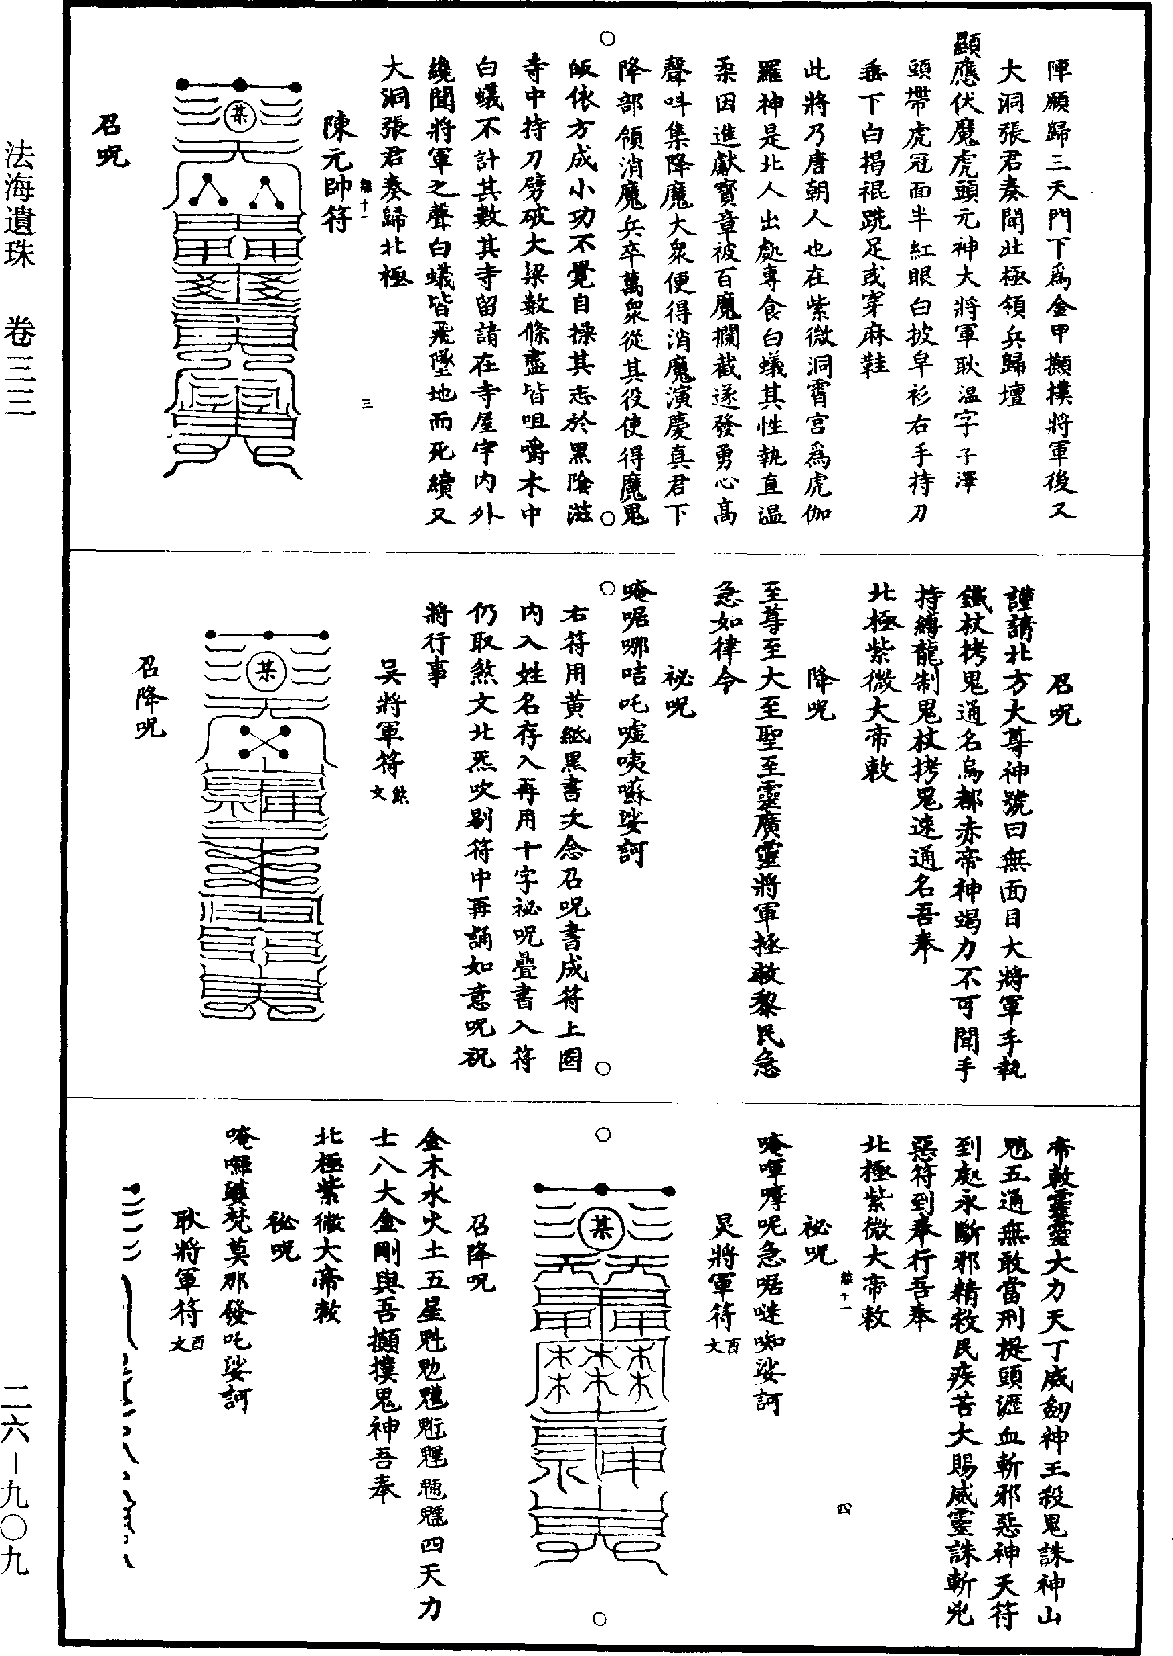 陣願歸三天門下爲金甲攧撲將軍後又
大洞張君奏聞北極領兵歸壇
顯應伏魔虎頭元神大將軍耿溫字子澤
頭帶虎冠面半紅眼白披皁衫右手持刀
垂下白捐裩跣足或穿麻鞋
此將乃唐朝人也在紫微洞霄宮爲虎伽
羅神是北人出處專食白蟻其性執直溫
柔因進獻寶章被百魔攔截遂發勇心高
聲呌集降魔大衆便得消魔演慶真君下
降部領消魔兵卒萬衆從其役使得魔鬼
皈依方成小功不覺自操其志於黑陰滋
寺中持刀劈破大梁數條盡皆咀嚼木中
白蟻不計其數其寺留請在寺屋宇內外
纔聞將軍之聲白蟻皆飛墜地而死續又
大洞張君奏歸北極
陳元帥符
三
某
召呪
召呪
謹請北方大尊神號曰無面目大將軍手執
鐵杖拷鬼通名烏都赤帝神竭力不可聞手
持縛龍制鬼杖拷鬼速通名吾奉
北極紫微大帝敕
降呪
至尊至大至聖至靈廣靈將軍拯救黎民急
急如律令
祕呪
唵唨哪咭吒嘘咦囌娑訶
右符用黃紙黑書文念召呪書成符上圈
內入姓名存入再用十字祕呪疊書入符
仍取煞文北炁吹剔符中再誦如意呪祝
將行事
吳將軍符
某
召降呪
帝敕靈靈大力天丁威劒神王殺鬼誅神山
魈五通無敢當刑提頭瀝血斬邪惡神天符
到處永斷邪精救民疾苦大賜威靈誅斬兇
惡符到奉行吾奉
北極紫微大帝敕
祕呪
四
唵喗㖼呪急唨噠㗌娑訶
炅將軍符 酉文
某
召降呪
金木水火土五星魁𩲃魓䰢魒魖四天力
士八大金剛與吾攧撲鬼神吾奉
北極紫微大帝敕
祕呪
唵囉㘑梵莫那發吒娑訶
耿將軍符 酉文
法海遺珠 卷三三
二六－九〇九